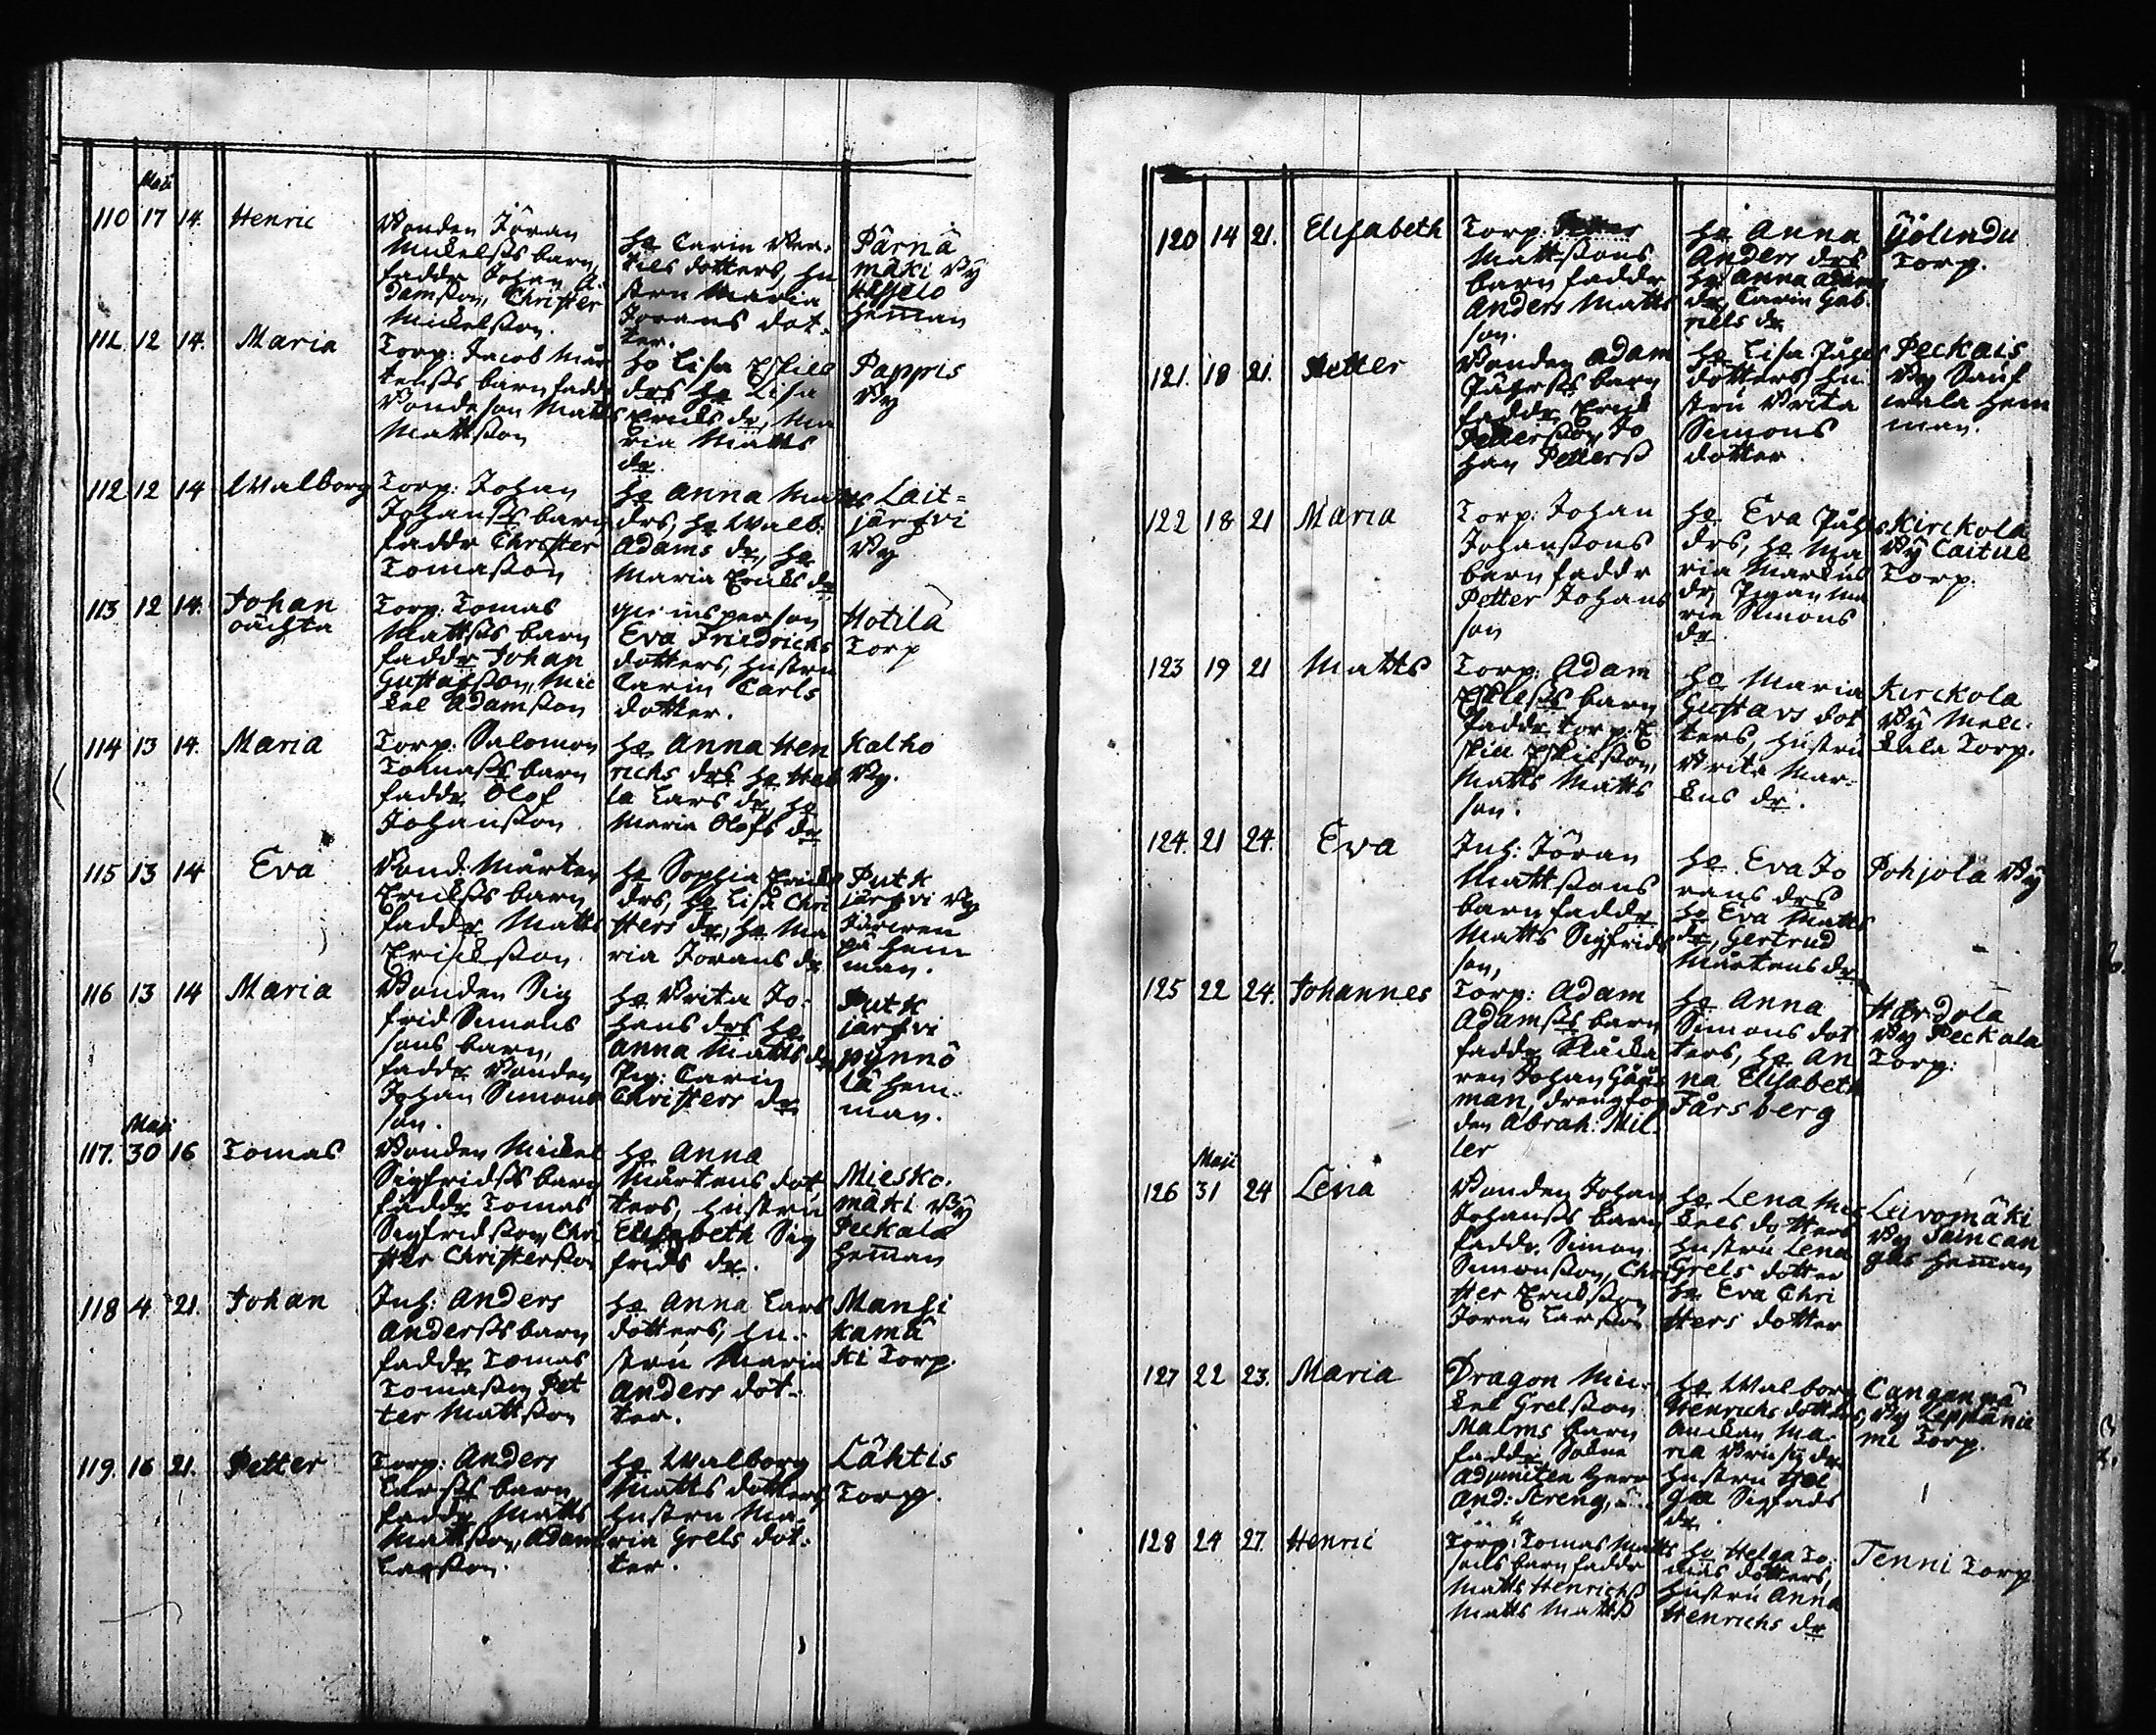 Maji
110 17 14. Henric
Bonden Jöran
Mickelsss barn,
faddr Johan A:
damsson, Christer
Mickelsson.
ho Carin Ber:
tils dotters, hu
stru Maria
Jorans dot:
ter.
Pärnä
mäki By
heman
111. 12 14. Maria
Torp: Jacob Mår
tensss barn fadd
Bonde son Matts
Mattsson
ho Lisa Eskill
drs ho Lisa
Ericks dr, Ma
ria Matts
dr.
Pappris
By
112 12 14 Walborg
Torp: Johan
Johansss barn
faddr Christer
Tomasson
ho Anna Matts
drs, ho Walb:
Adams dr, ho
Maria Ericks dr,
Lait=
järfvi
By
113 12 14. Johan
oächta
Torp: Tomas
Mattsss barn
faddr Johan
Gustafsson, Mic
kel Adamsson
qvinsperson
Eva Friedrichs
dotters, hustru
Carin Carls
dotter.
Hotila
Torp
114 13 14. Maria
Torp: Salomon
Tomasss barn
faddr Olof
Johansson
ho Anna Hen
richs drs ho Hel
la Lars dr, ho
Maria Olofs dr
Kalho
By.
115 13 14 Eva
Bond: Mårten
Ericksss barn
faddr Matts
Erickson
ho Sophia Ericks
drs, ho Lisa Chri
sters dr, ho Ma
ria Jorans dr
Putk
järfvi By
Järwen
pä hem
man.
116 13 14 Maria
Bonden Sig
frid Simons
sons barn,
faddr Bonden
Johan Simons
son.
ho Brita Jo:
hans drs ho
Anna Matts dr
Pig: Carin
Christers dr
Putk
järfvi
pynnö
lä hem:
man.
Maji
117. 30 16 Tomas
Bonden Mickel
Sigfridsss barn
faddr Tomas
Sigfridsson, Chri
ster Christersson
ho Anna
Mårtens dot
ters, hustru
Elisabeth Sig
frids dr.
Miesko.
mäki By
Peckala
heman
118 4 21. Johan
Inh: Anders
Andersss barn
faddr Tomas
Tomasson Pet
ter Mattsson
ho Anna Lars
dotters, hu:
stru Maria
Anders dot:
ter.
Mansi
kamä
ki Torp.
119. 16 21. Petter
Torp: Anders
Larsss barn
faddr Matts
Mattsson, Adam
Larsson.
ho Walborg
Matts dotters
hustru Ma:
ria Grels dot:
ter.
Lähtis
Torp.
120 14 21. Elisabeth
Torp: Petter
Mattssons
barn faddr
Anders Matts
son.
ho Anna
Anders drs
ho Anna Adams
dr, Carin Gab:
riels dr
Torp.
121. 18 21. Petter
Bonden Adam
Påhlsss barn
faddr Erick
Pettersson, Jo
han Petterss
ho Lisa Påhls
dotters hu
stru Brita
Simons
dotter.
Peckais
By
wala hem
man.
122 18 21 Maria
Torp: Johan
Johanssons
barn faddr
Petter Johans
son
ho Eva Påhls
drs, ho Ma
ria Markus
dr, Pigan Ma
ria Simons
dr.
Kirckola
By Caitue
Torp.
123 19 21 Matts
Torp: Adam
Eskilsss barn
faddr Torp: E
skill Eskilsson,
Matts Matts
son.
ho Maria
Gustavs dot
ters, hustru
Brita Mar:
kus dr.
Kirckola
By Meli:
kala Torp.
124. 21 24. Eva
Inh: Jöran
Mattssons
barn faddr
Matts Sigfrids
son,
ho Eva Jo
rans drs
ho Eva Matts
dr, Gertrud
Mårtens dr
Pohjola By
125 22 24. Johannes
Torp: Adam
Adamsss barn
faddr Klåcka
ren Johan
man, drengfog
den Abrah: Mil:
ler
ho Anna
Simons dot
ters, ho An
na Elisabeth
Fårsberg
Hardola
By Peckala
Torp:
Maji
126 31 24 Lena
Bonden Johan
Johansss barn
faddr Simon
Simonsson, Chri
ster Ericksson
Joran Larsson
ho Lena Mic
kels dotters
Hustru Lena
Grels dotter
ho Eva Chri
sters dotter
Luvomäki
By
gas heman
127 22 23. Maria
Dragon Mic:
kel Grelsson
Malms barn
faddr
And: Streng,
ho Walborg
Henrichs dotters
Ma:
ria
hustru Hel
ga Sigfrids
dr.
Canganpä
By Leppänie
mi Torp.
128 24 27. Henric
Torp: Tomas Matts
sons barn faddr
Matts Henrichss
Matts Mattss
ho Helga To:
mas dotters,
Hustru Anna
Henrichs dr
Tenni Torp